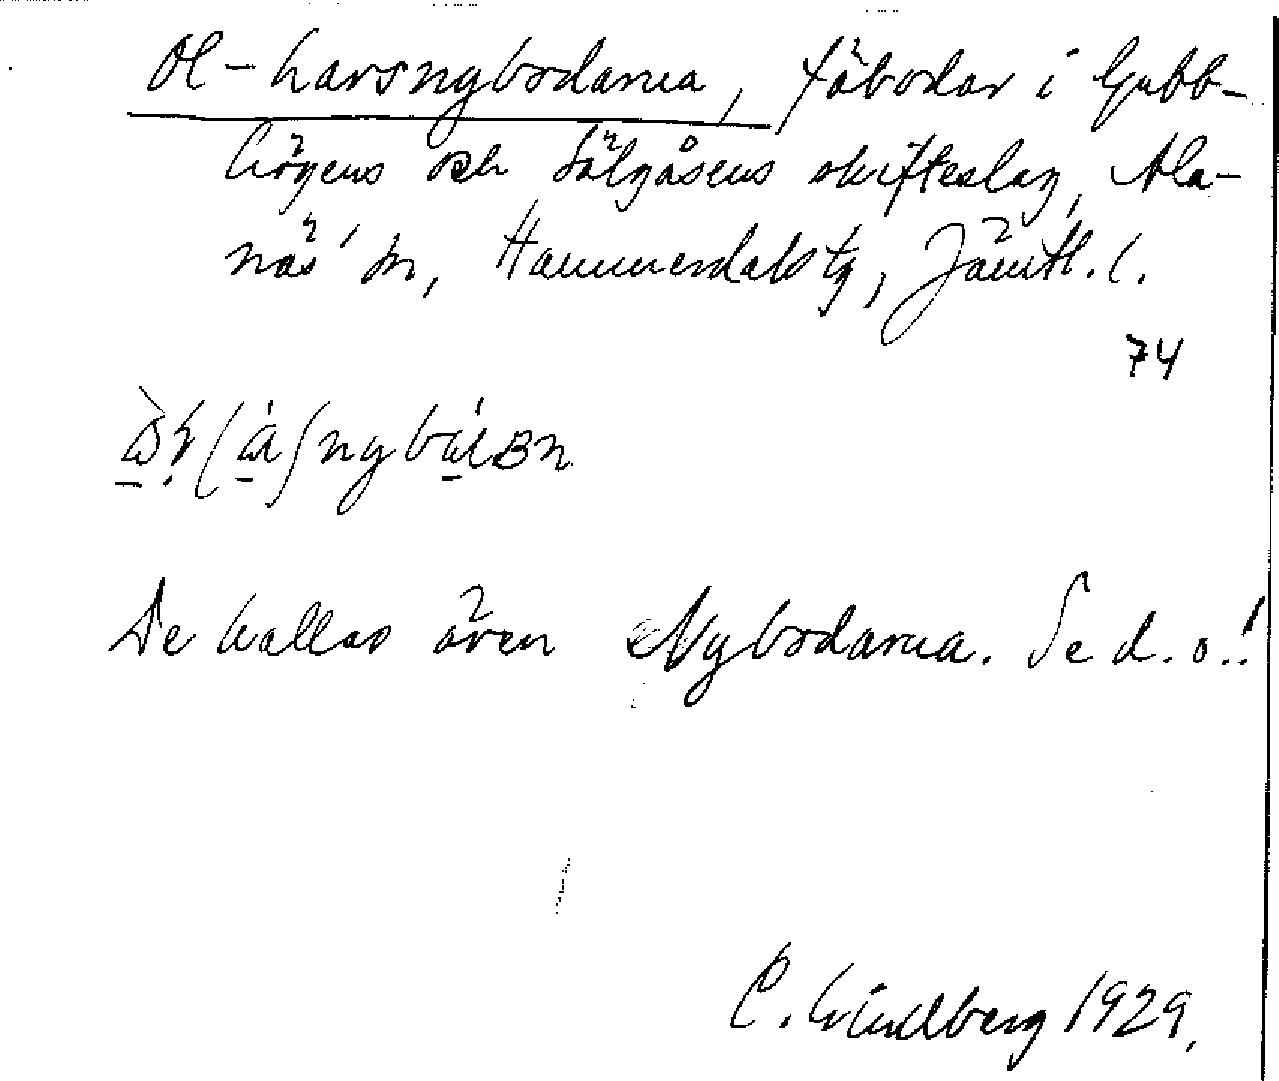 Ol-Larsnybodarna, fäbodar i Gubb-
högens och Sälgåsens skifteslag, Ala-
näs' sn, Hammerdals tg, Jämtl. l.
74
De kallas även Nybodarna. Se d. o.!
C. Lindberg 1929.